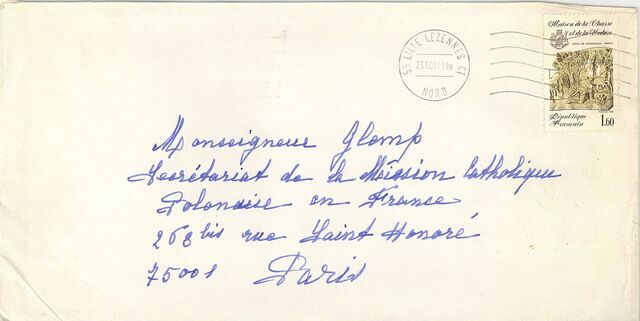 Maison de la Chasse
et de la Nature
HOTEL DE GUENEGAUD - PARIS
59 LILLE LEZENNES CT
23.12.81 19H
NORD
République
Francaise
1.60
Monseigneur Glemp
Secrétariat de la Mission Catholique
Polonaise en France
263 bis rue Saint Honoré
75001 Paris